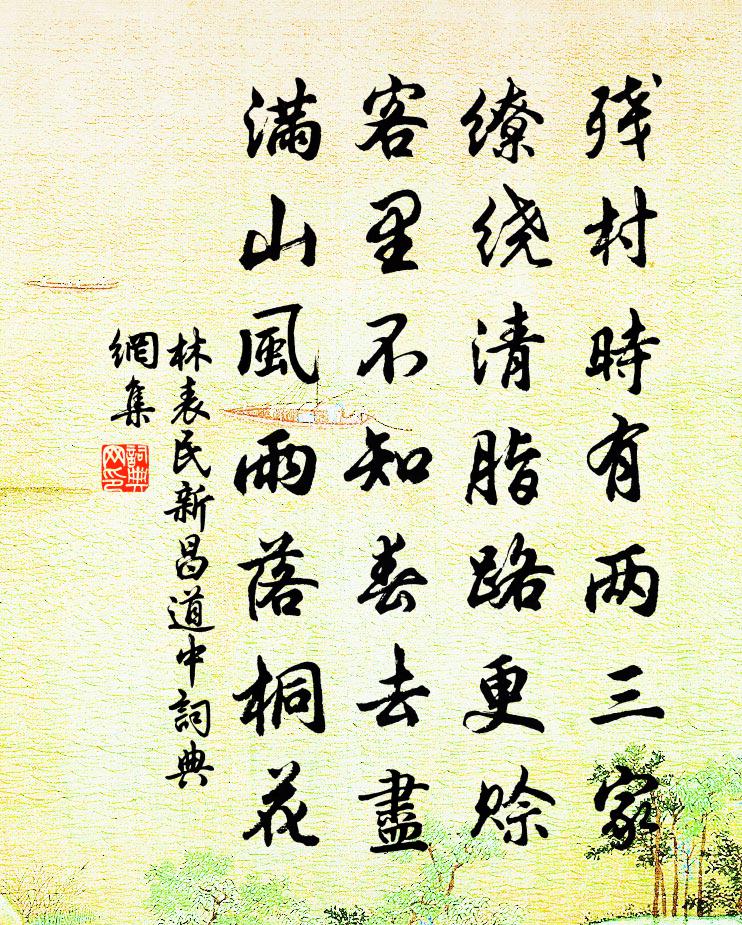 残村時有两三家
繚绕清脂路更赊
客里不知春去盡
满山風雨落桐花
林表民新昌道中詞典
網集
詞典
网印